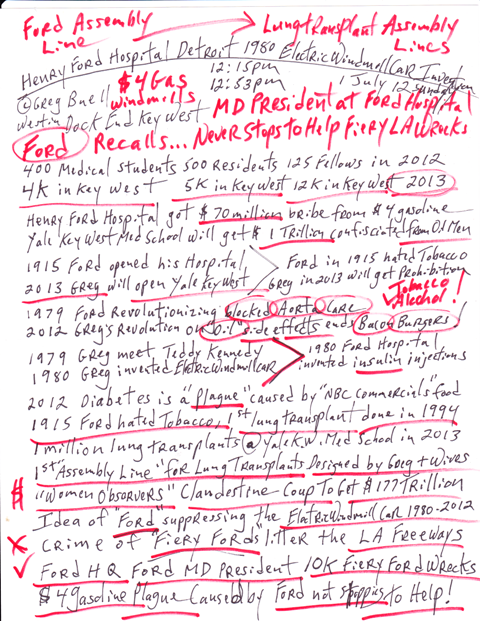 Ford Assembly Line → Lung transplant Assembly Lines
Henry Ford Hospital Detroit 1980 ElectricWindmillCar Invent
12:15pm
$4 Gas Windmills 12:53pm 1 July 12
© Greg Buell
Westin Dock End Key West
MD President at Ford Hospital
Ford Recalls... Never Stops to Help Fiery LA Wrecks
400 Medical students 500 Residents 125 Fellows in 2012
4K in Key West 5K in Key West 12K in Key West 2013
Henry Ford Hospital got $70 million bribe from $4 gasoline
Yale Key West Med School will get $1 Trillion confisciated from Oil Men
1915 Ford opened his Hospital Ford in 1915 hated Tobacco
2013 Greg will open Yale Key West Greg in 2013 will get Prohibition
Tobacco Alcohol!
1979 Ford Revolutionizing blocked Aorta Care
2012 Greg's Revolution on "0.1" side effects ends Bacon Burgers!
1979 Greg meet Teddy Kennedy 1980 Ford Hospital
1980 Greg invented EletricWindmillCAR invented insulin injections
2012 Diabetes is a "plague" caused by "NBC commercials" food
1915 Ford hated Tobacco, 1st lung transplant done in 1994
1 million lung transplants @ Yale K.W. Med School in 2013
1st "Assembly Line" for Lung Transplants Designed by Greg + Wives
$ "Women Observers" Clandestine Coup To Get $177 Trillion
Idea of "Ford" suppressing the ElatricWindmillCar 1980-2012
X Crime of "Fiery Fords" litter the LA Freeways
✓ Ford HQ Ford MD President 10K Fiery Ford Wrecks
$4 gasoline Plague Caused by Ford not stopping to Help!